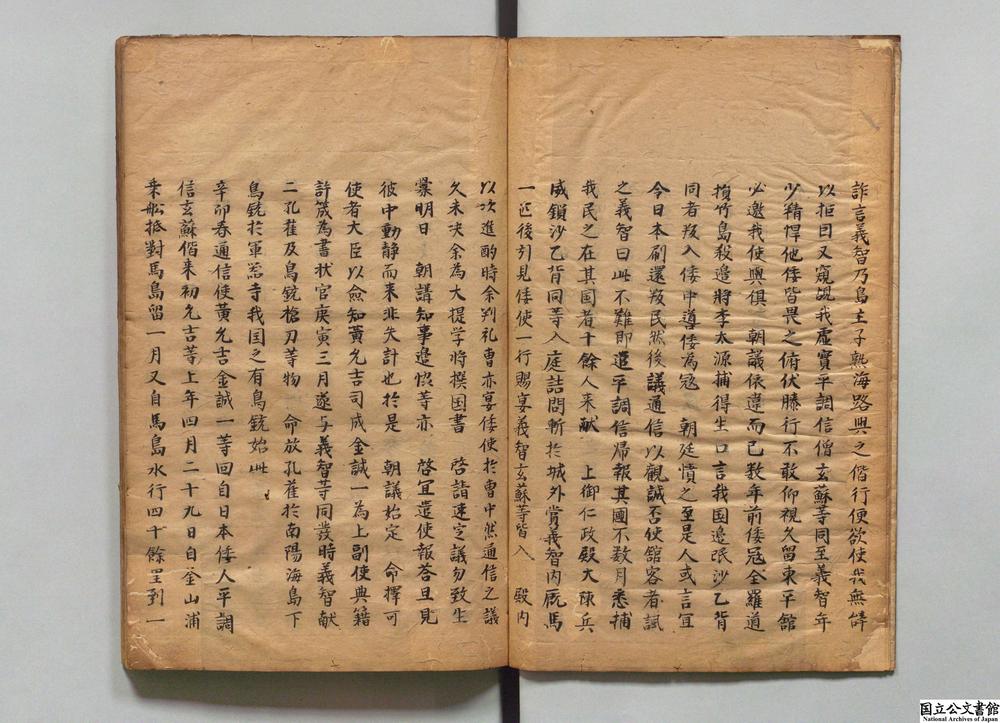 詐言義智乃島主子熟海路與之偕行便欲使我無辞
以拒因又窺覘我虛實平調信僧玄蘇等同至義智年
少精悍他倭皆畏之俯伏膝行不敢仰視久留東平館
必邀我使與俱 朝議依違而已数年前倭寇全羅道
損竹島殺邉將李太源捕得生口言我国邉氓沙乙背
同者叛入倭中導倭為寇 朝廷憤之至是人或言宜
令日本刷還叛民然後議通信以觀誠否使館客者諷
之義智曰此不難即遣平調信歸報其國不数月悉捕
我民之在其国者十餘人来献 上御仁政殿大陳兵
威鎖沙乙背同等入庭詰問斬於城外賞義智内厩馬
一匹後引見倭使一行賜宴義智玄蘇等皆入 殿内
以次進酌時余判礼曹亦宴倭使於曹中然通信之議
久未决余為大提学將撰国書 啓請速定議勿致生
釁明日 朝講知事邉恊等亦 啓宜遣使報答且見
彼中動静而来非失計也於是 朝議始定 命擇可
使者大臣以僉知黄允吉司成金誠一為上副使典籍
許筬為書状官庚寅三月遂与義智等同發時義智献
二孔雀及鳥銃槍刀等物 命放孔雀於南陽海島下
鳥銃於軍器寺我国之有鳥銃始此
辛卯春通信使黄允吉金誠一等回自日本倭人平調
信玄蘇偕来初允吉等上年四月二十九日自釜山浦
乗船抵對馬島留一月又自馬島水行四十餘里到一
国立公文書館
National Archives of Japan